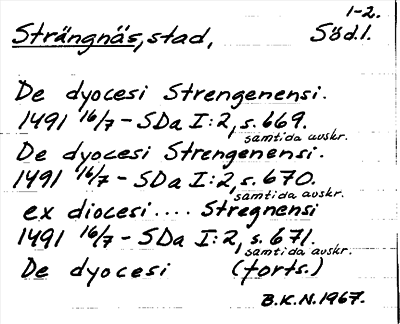 1-2.
Strängnäs, stad, Södl.
De dyocesi Strengenensi.
1491 16/7 - SDa I:2, s. 669.
samtida avskr.
De dyocesi Strengenensi.
1491 16/7 - SDa I:2, s. 670.
samtida avskr.
ex diocesi.... Stregnensi
1491 16/7 - SDa I:2, s. 671.
samtida avskr.
De dyocesi (forts.)
B.K.N. 1967.